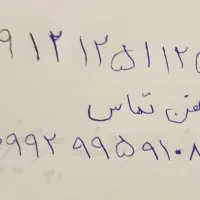 ۹۱۲ ۱۲۵۱۱۲۵
تماس
۰۹۹۲ ۹۹۵۹۱۰۸